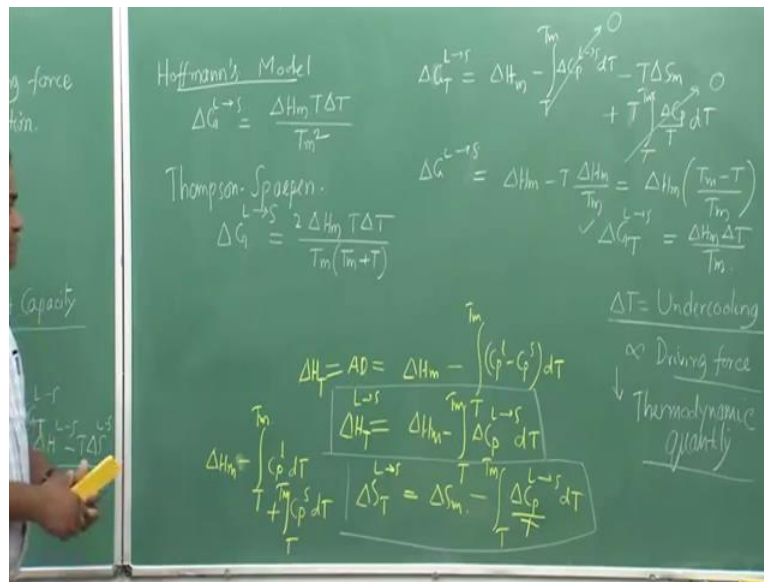 force
tion.
Capacity
ΔH^{L-S} - TΔS^{L-S}
Hoffmann's Model
ΔG^{L→S} = ΔHm TΔT / Tm²
Thompson-Spaepen.
ΔG^{L→S} = 2 ΔHm TΔT / Tm(Tm+T)
ΔG_T^{L→S} = ΔHm - ∫_T^{Tm} ΔCp^{L→S} dT → 0 - TΔSm
+ T ∫_T^{Tm} ΔCp/T dT → 0
ΔG^{L→S} = ΔHm - T ΔHm/Tm = ΔHm (Tm-T / Tm)
✓ ΔG_T^{L→S} = ΔHm ΔT / Tm.
ΔT = Undercooling
∝ Driving force
↓ Thermodynamic
quantity
ΔH_T = AD = ΔHm - ∫_T^{Tm} (Cp^l - Cp^s) dT
ΔH_T^{L→S} = ΔHm - ∫_T^{Tm} ΔCp^{L→S} dT
ΔS_T^{L→S} = ΔSm. - ∫_T^{Tm} ΔCp^{L→S}/T dT
ΔHm - ∫_T^{Tm} Cp^l dT
+ ∫_T^{Tm} Cp^s dT